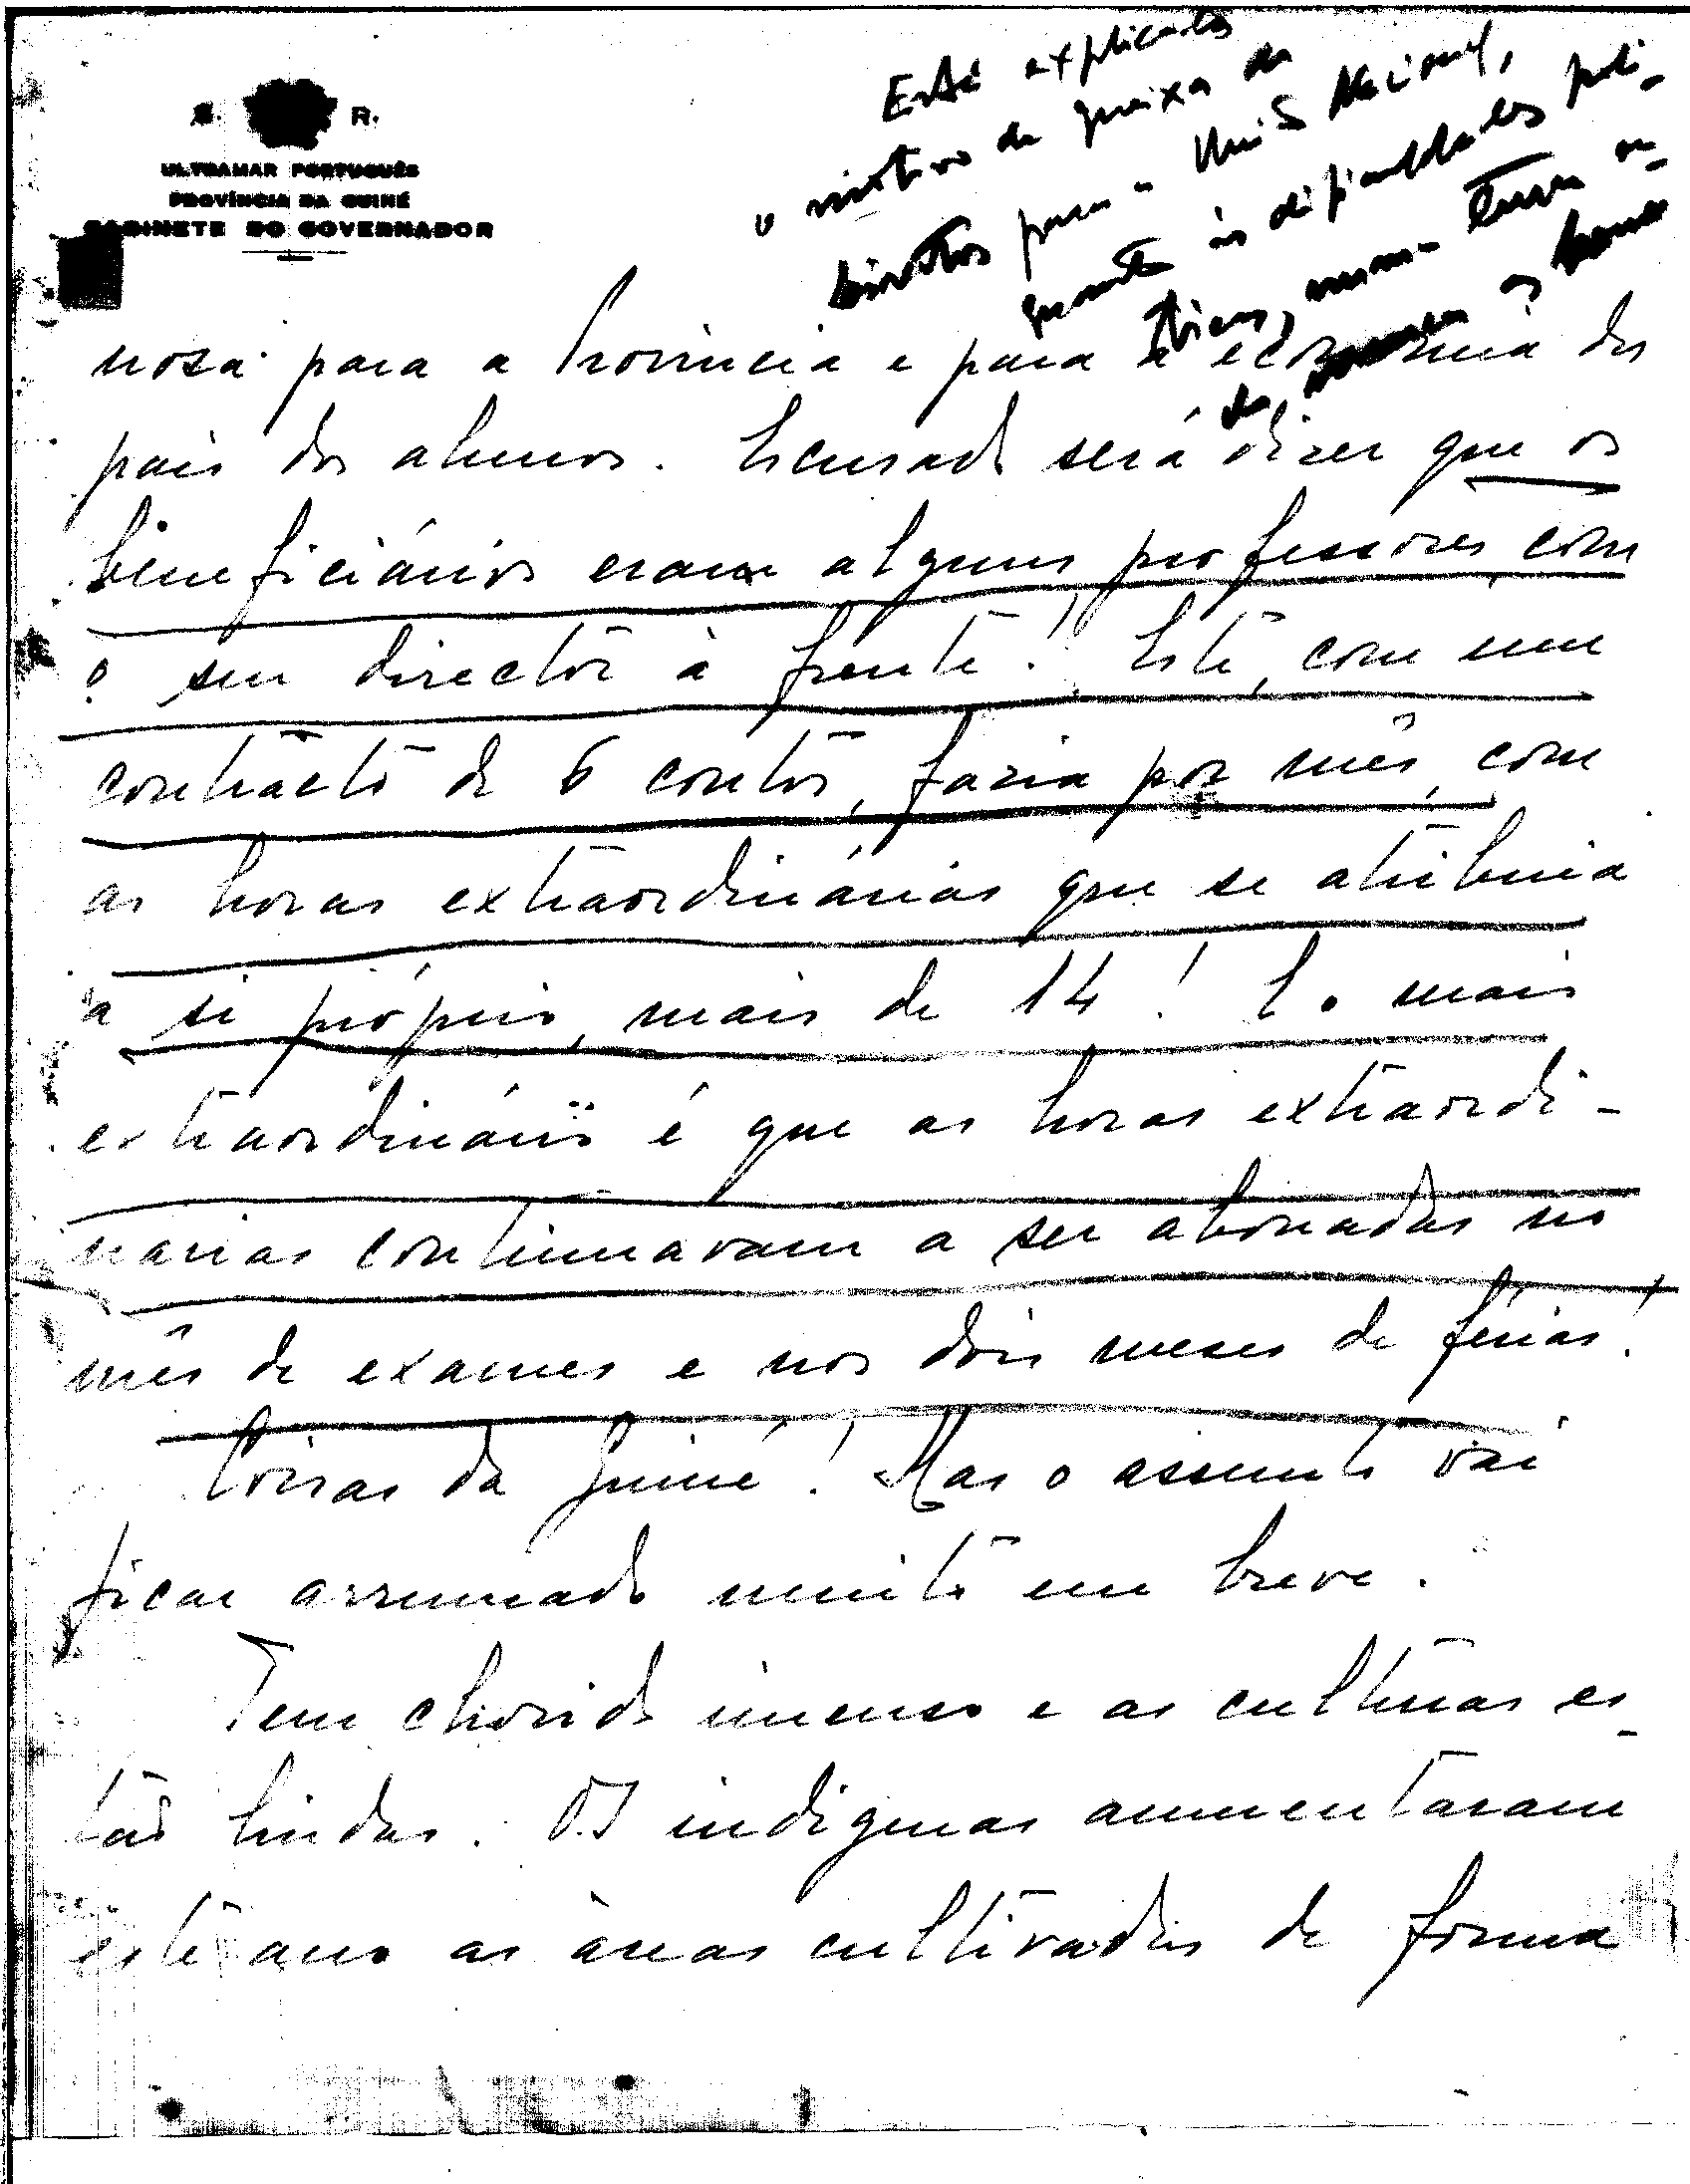 S. R.
ULTRAMAR PORTUGUÊS
PROVÍNCIA DA GUINÉ
GABINETE DO GOVERNADOR
Está explicado
o motivo da queixa da
para a União Nacional,
quanto às dificuldades polí-
ticas, numa terra
nosa para a Província e para a economia dos
pais dos alunos. Escusado será dizer que os
beneficiários eram alguns professores, com
o seu director à frente! Este, com um
contracto de 6 contos, fazia por mês, com
as horas extraordinárias que se atribuia
a si próprio, mais de 14! E o mais
extraordinário é que as horas extraordi-
narias continuavam a ser abonadas no
mês de exames e nos dois meses de férias!
Coisas da Guiné! Mas o assunto vai
ficar arrumado muito em breve.
Tem chovido imenso e as culturas es-
tão lindas. Os indigenas aumentaram
este ano as àreas cultivadas de forma